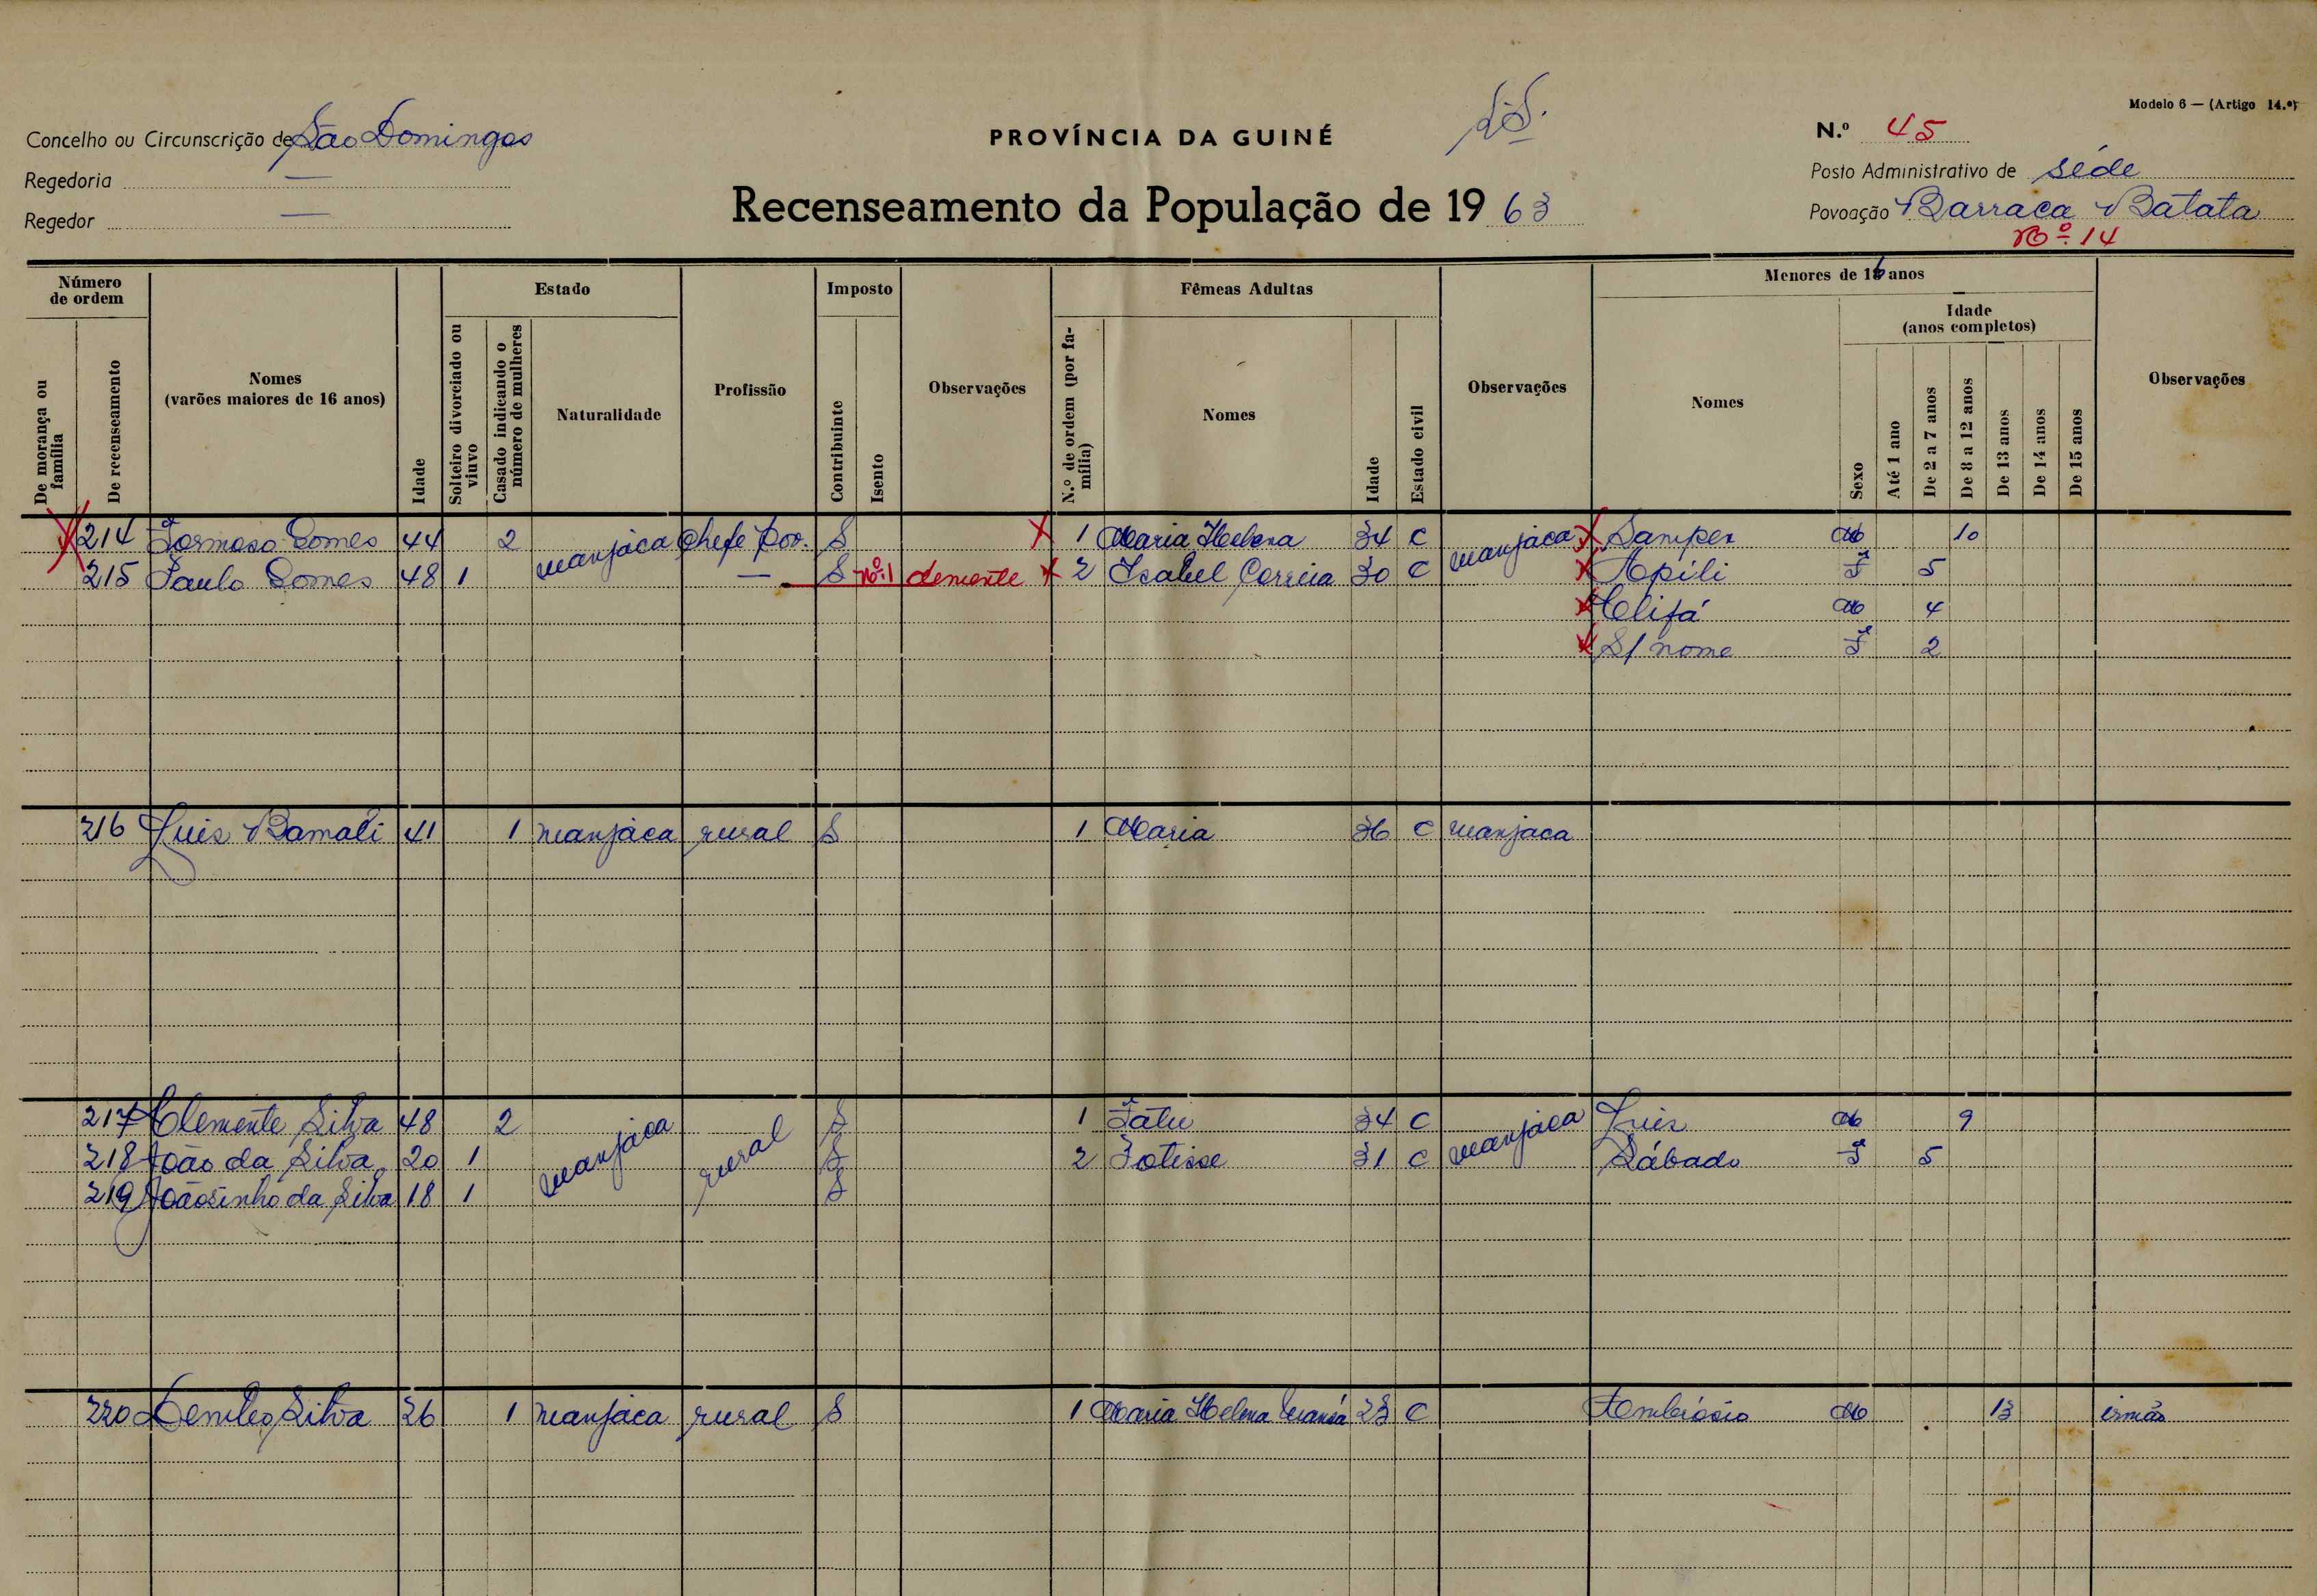 Modelo 6 — (Artigo 14.º)
Concelho ou Circunscrição de São Domingos
PROVÍNCIA DA GUINÉ
N.º 45
Regedoria —
Posto Administrativo de séde
Regedor —
Recenseamento da População de 1963
Povoação Barraca Batata
Nº. 14
Número de ordem
De morança ou família
De recenseamento
Nomes
(varões maiores de 16 anos)
Idade
Estado
Solteiro divorciado ou viuvo
Casado indicando o número de mulheres
Naturalidade
Profissão
Imposto
Contribuinte
Isento
Observações
Fêmeas Adultas
N.º de ordem (por família)
Nomes
Idade
Estado civil
Observações
Menores de 16 anos
Nomes
Sexo
Idade
(anos completos)
Até 1 ano
De 2 a 7 anos
De 8 a 12 anos
De 13 anos
De 14 anos
De 15 anos
Observações
214 Formoso Gomes 44 2 manjaca Chefe Pov. S 1 Maria Helena 34 C manjaca Samper M 10
215 Paulo Gomes 48 1 — S nº.1 demente 2 Isabel Correia 30 C Apili F 5
Clifá M 4
S/ nome F 2
216 Luis Bamali 41 1 manjaca rural S 1 Maria 36 C manjaca
217 Clemente Silva 48 2 manjaca rural S 1 Fatu 34 C manjaca Luis M 9
218 João da Silva 20 1 S 2 Fotisse 31 C Sábado F 5
219 Joãosinho da Silva 18 1 S
220 Silva 26 1 manjaca rural S 1 Maria Helena 23 C Ambrósio M 13 irmão